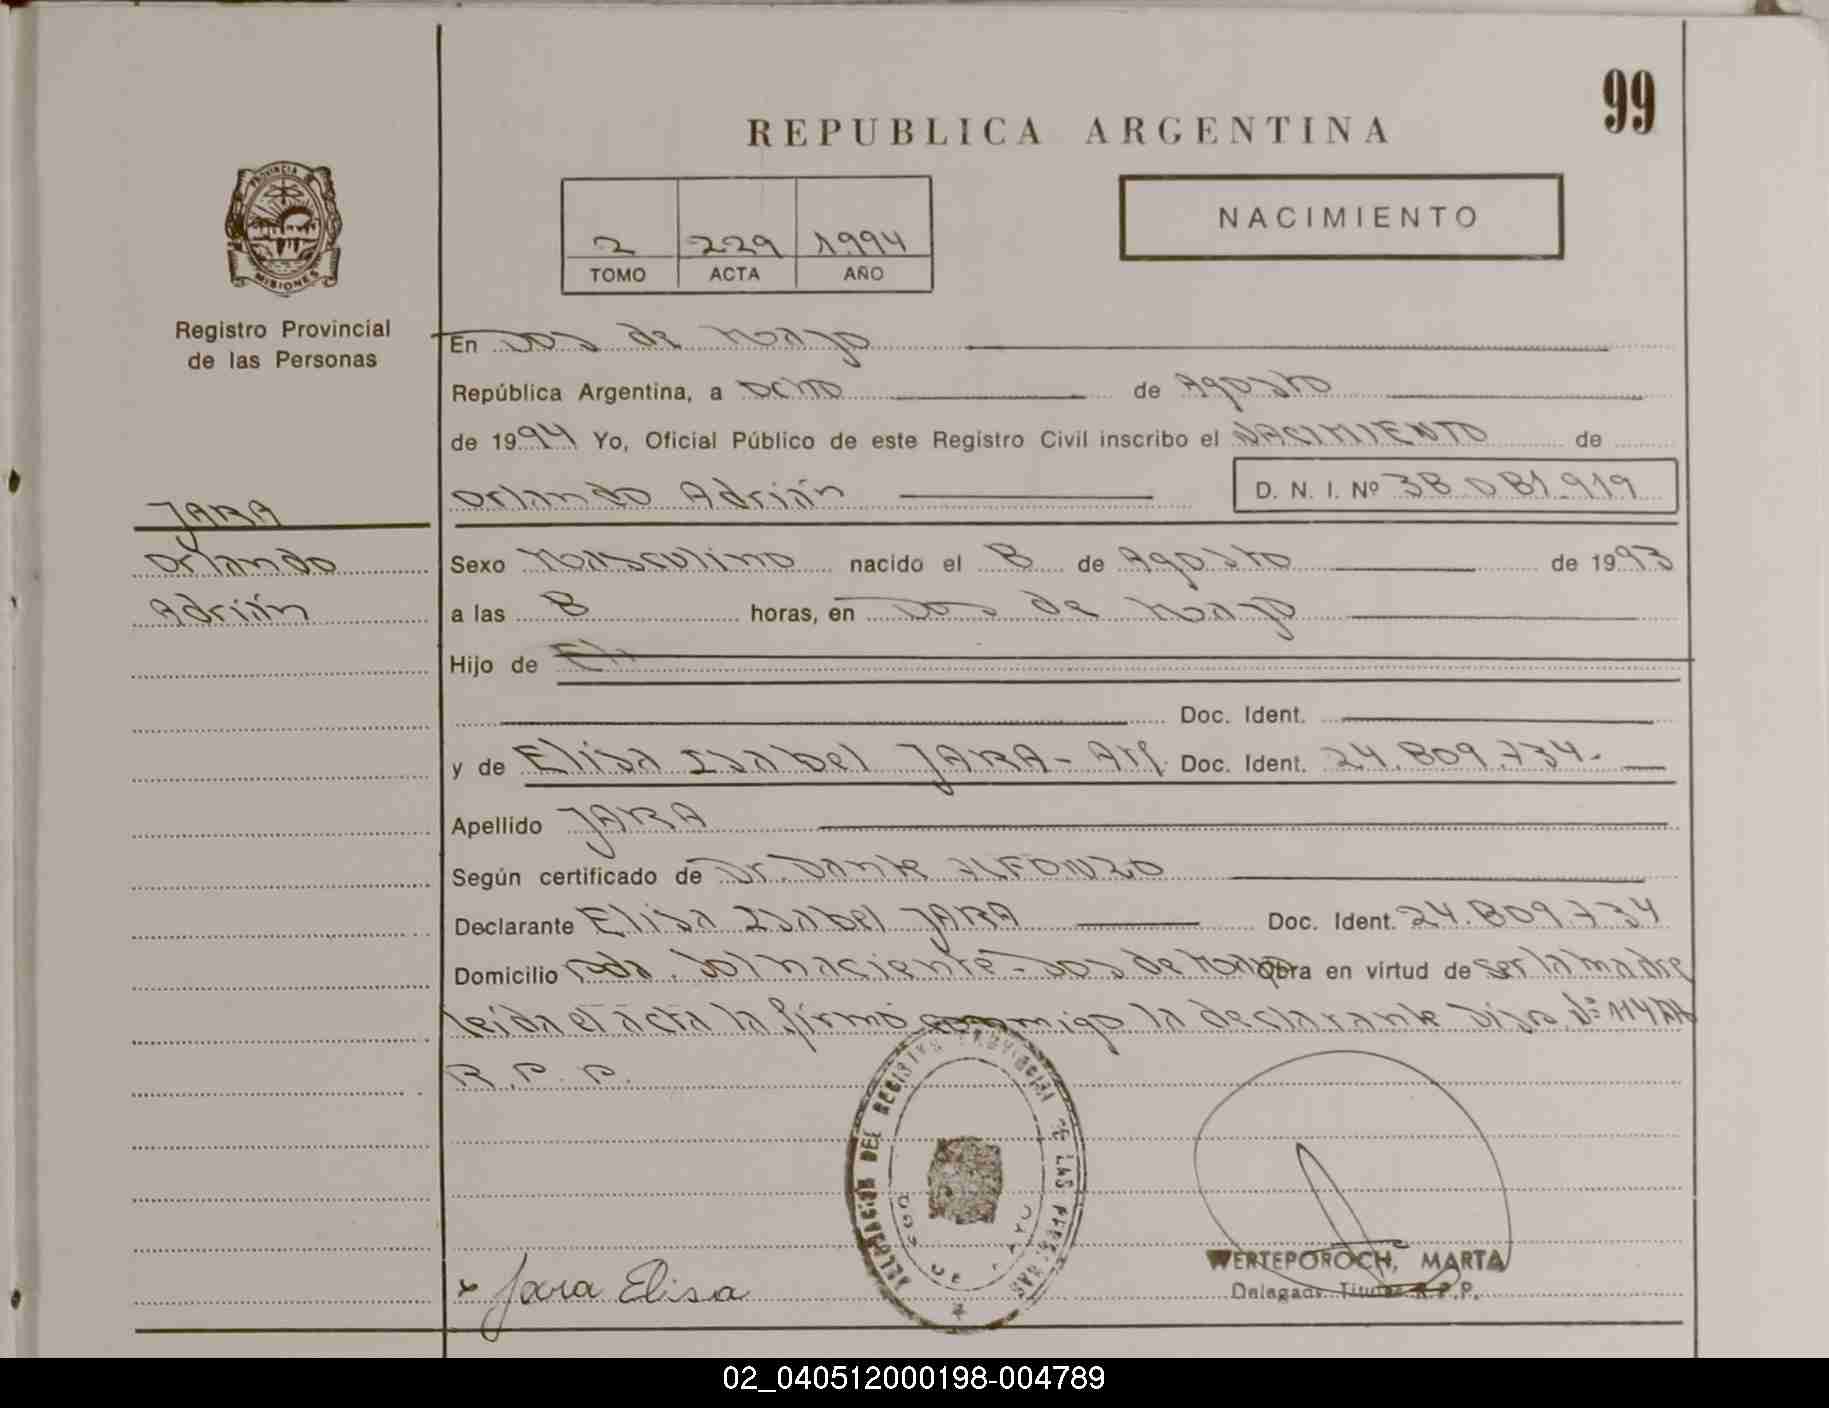 99
REPUBLICA ARGENTINA
PROVINCIA DE
MISIONES
Registro Provincial
de las Personas
2 229 1994
TOMO ACTA AÑO
NACIMIENTO
En Dos de Mayo
República Argentina, a ocho de Agosto
de 1994 Yo, Oficial Público de este Registro Civil inscribo el NACIMIENTO de
Orlando Adrián D. N. I. Nº 38.081.919
JARA
Orlando
Adrián
Sexo Masculino nacido el 8 de Agosto de 1993
a las 8 horas, en Dos de Mayo
Hijo de Eli
Doc. Ident.
y de Elisa Isabel JARA - Arg. Doc. Ident. 24.809.734-
Apellido JARA
Según certificado de Dr. Dante ALFONZO
Declarante Elisa Isabel JARA Doc. Ident. 24.809.734
Domicilio Pda. Sol naciente - Dos de Mayo Obra en virtud de ser la madre
leída el acta la firmó conmigo la declarante Disp. Nº
R.P.P.
DELEGACION DEL REGISTRO PROVINCIAL DE LAS PERSONAS
DOS DE MAYO
x Jara Elisa
WERTEPOROCH, MARTA
Delegada Titular R.P.P.
02_040512000198-004789